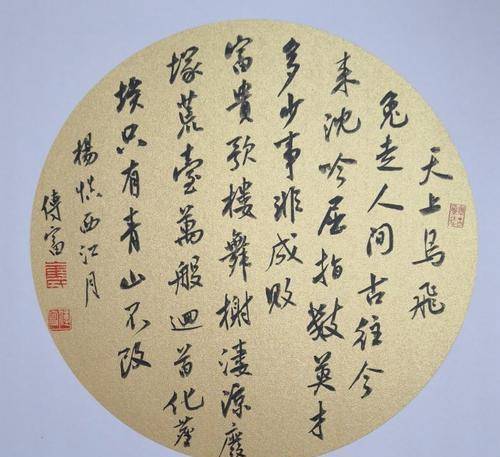 天上烏飛
兔走人間古往今
来沈吟屈指數英才
多少事非成敗
富貴歌樓舞榭淒涼廢
塚荒臺萬般迴首化塵
埃只有青山不改
楊慎西江月
傳富